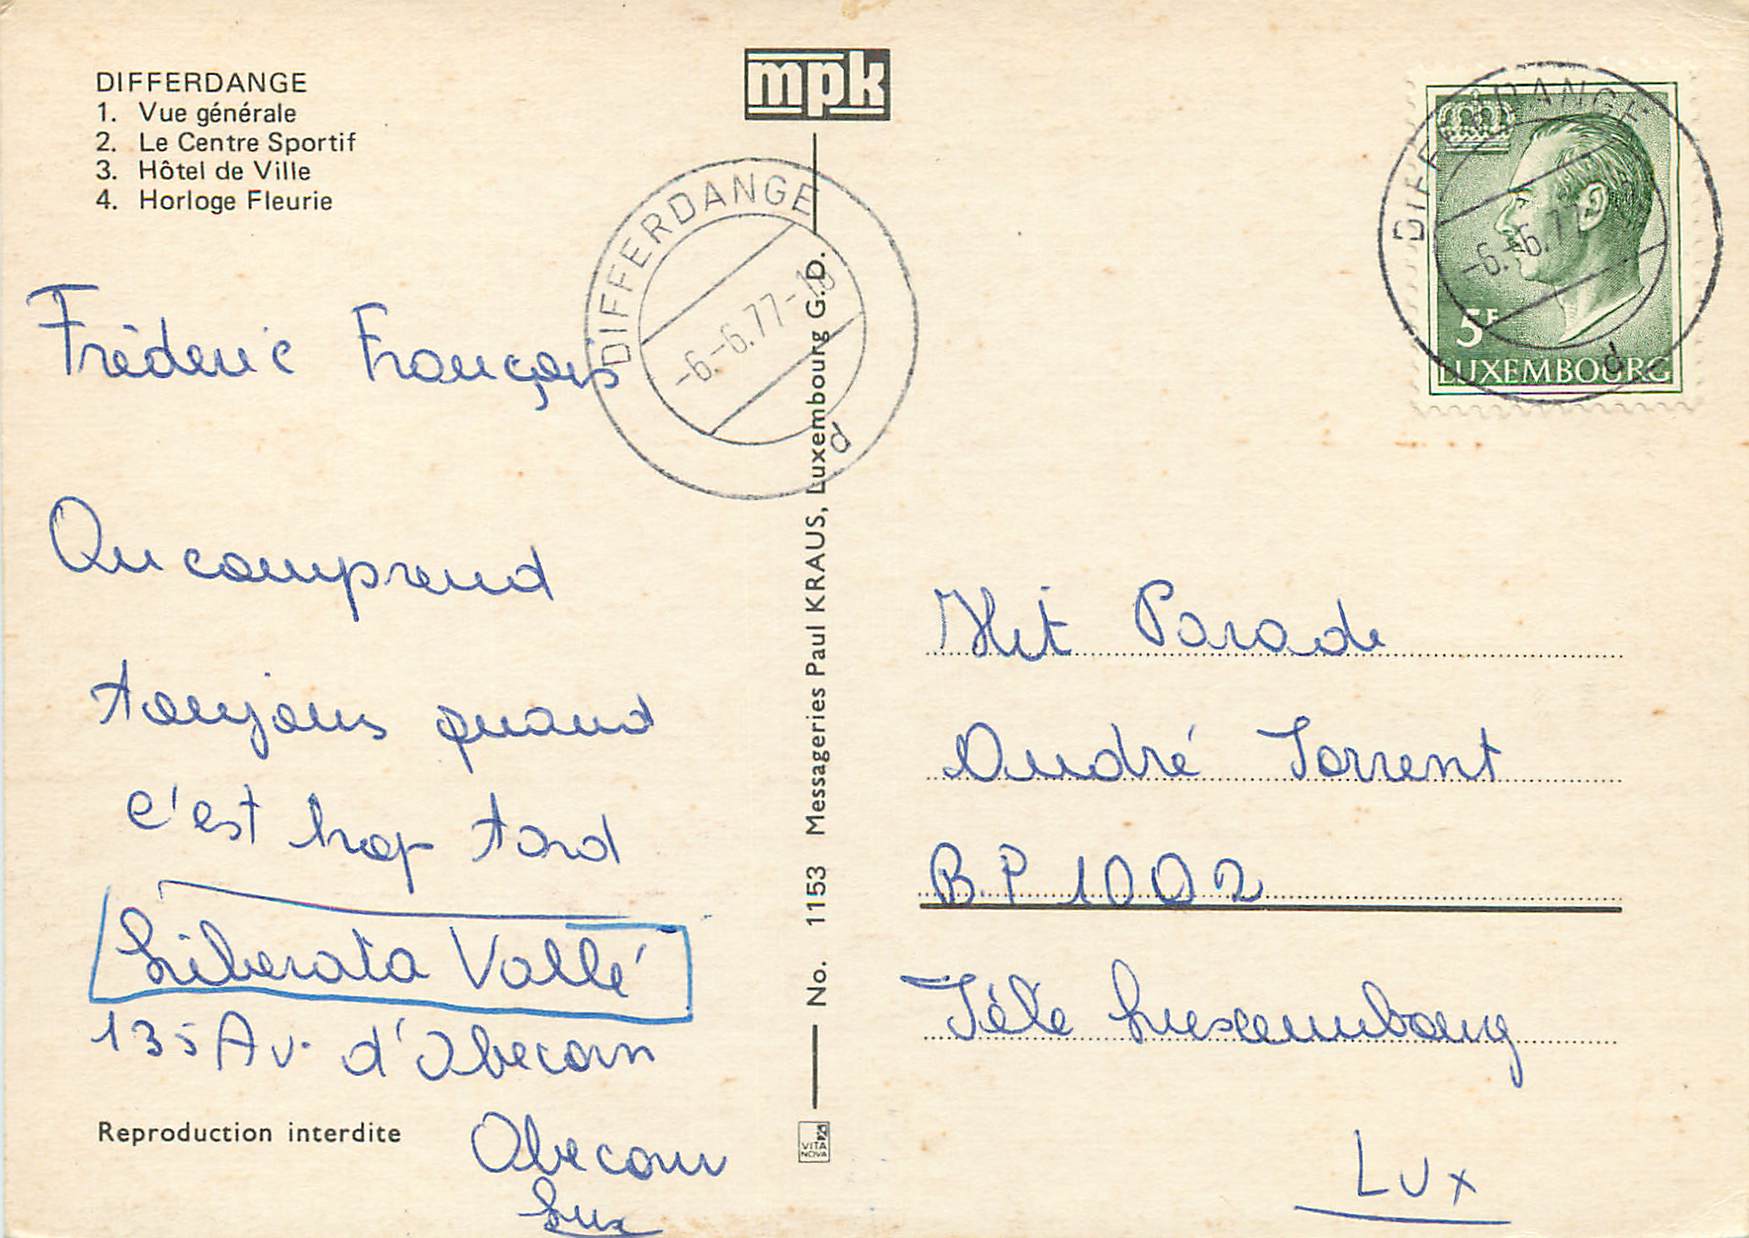 DIFFERDANGE
1. Vue générale
2. Le Centre Sportif
3. Hôtel de Ville
4. Horloge Fleurie
mpk
DIFFERDANGE
-6.-6.77-18
d
DIFFERDANGE
-6.-6.77
d
5F
LUXEMBOURG
Fréderic François
On comprend
toujours quand
c'est trop tard
Liberata Vallé
135 Av. d'Obecorn
Obecorn
Lux
Reproduction interdite
No. 1153 Messageries Paul KRAUS, Luxembourg G.D.
VITA NOVA
Hit Parade
André Torrent
B.P 1002
Télé Luxembourg
Lux